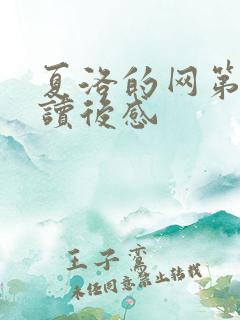 夏洛的网第
讀後感
王子鸾
未经同意禁止转载